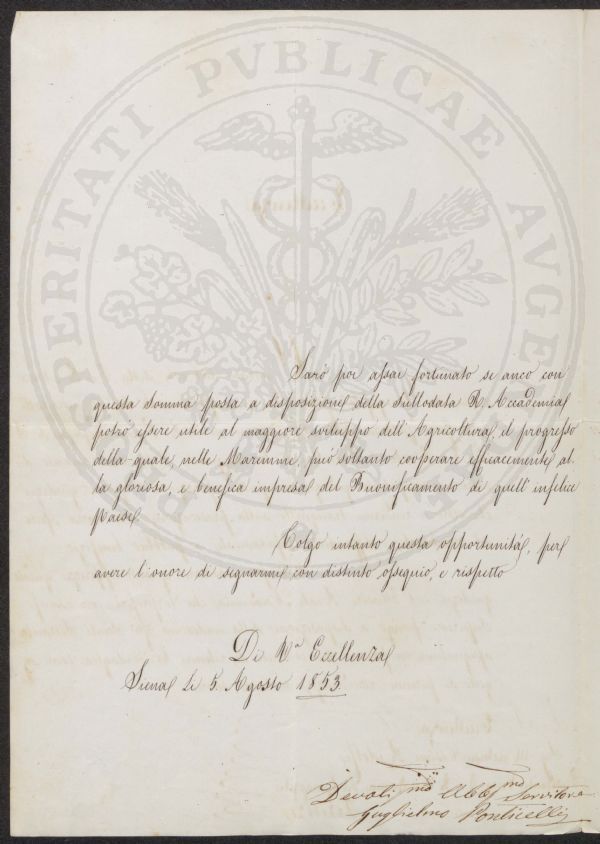 PROSPERITATI PVBLICAE AVGENDAE
Sarò poi assai fortunato se anco con
questa somma posta a disposizione della Sullodata R. Accademia
potrò essere utile al maggiore sviluppo dell'Agricoltura, il progresso
della quale, nelle Maremme, può soltanto cooperare efficacemente al-
la gloriosa, e benefica impresa del Buonificamento di quell'infelice
Paese.
Colgo intanto questa opportunità, per
avere l'onore di segnarmi con distinto ossequio, e rispetto
Di V.ª Eccellenza
Siena Li 5. Agosto 1853
Devotiss.mo Obb.mo Servitore
Guglielmo Ponticelli